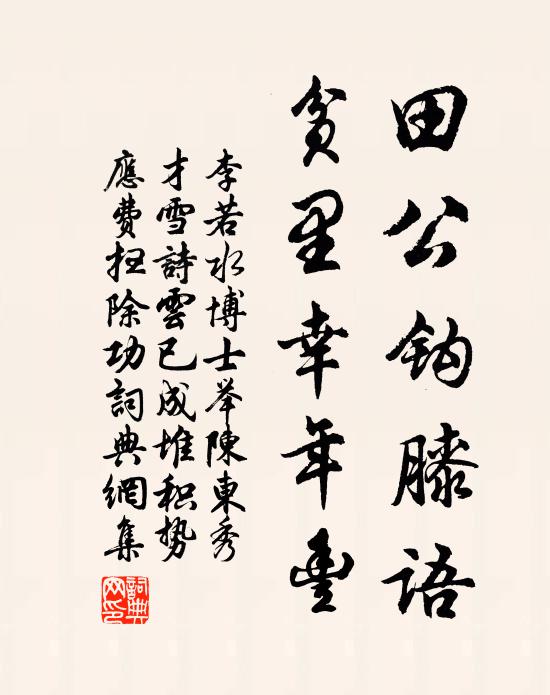 田公鈎膝語
貧里幸年豐
李若水博士举陳東秀
才雪詩雲已成堆积势
應費扫除功詞典網集
詞典
网印